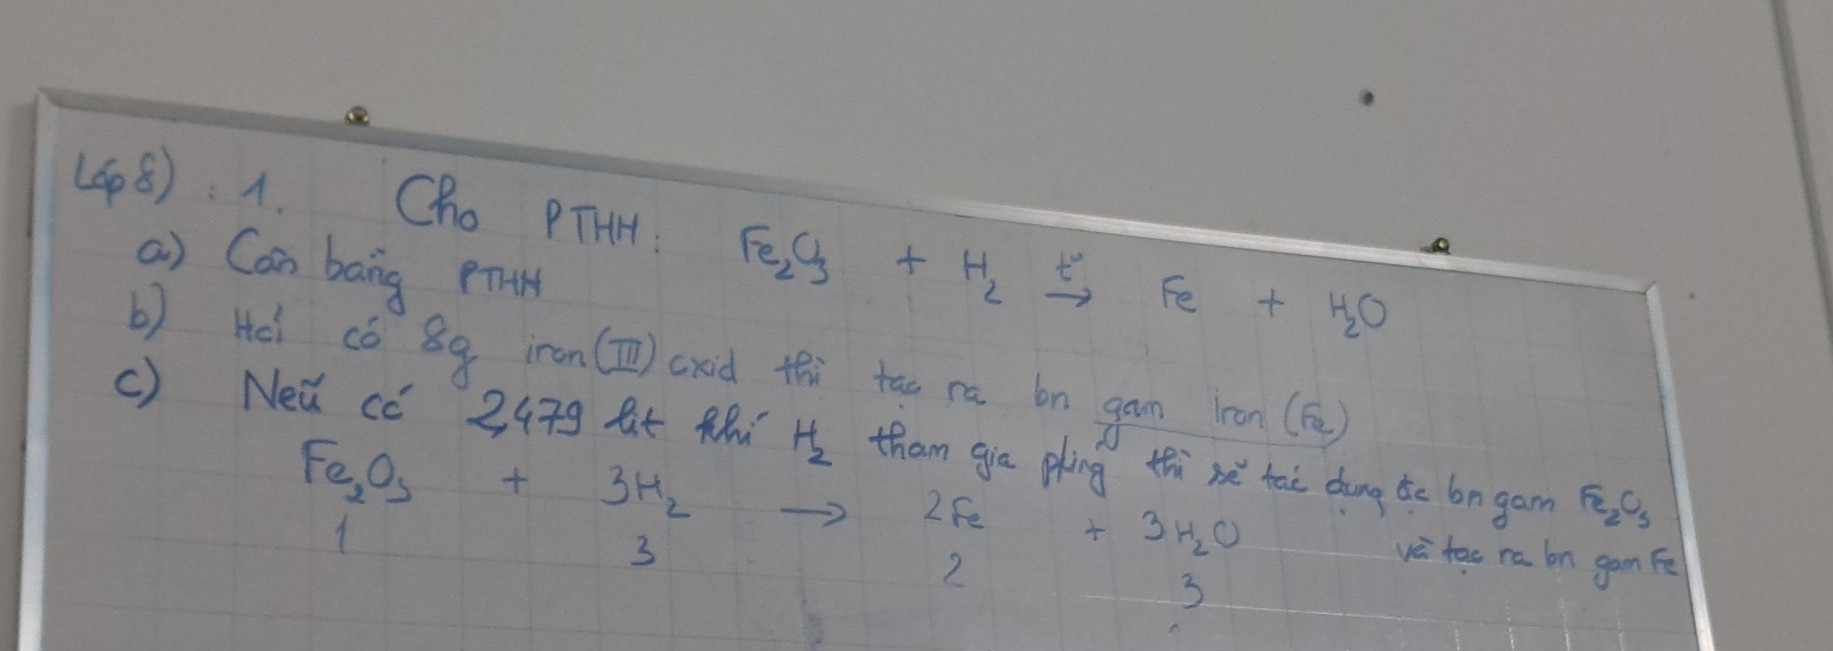 Lớp 8) : 1. Cho PTHH: Fe₂O₃ + H₂ →(t°) Fe + H₂O
a) Cân bằng PTHH
b) Hỏi có 8g iron (III) oxid thì tạo ra bn gam iron (Fe)
c) Nếu có 2,479 lít khí H₂ tham gia pứng thì sẽ tác dụng đc bn gam Fe₂O₃
và tạo ra bn gam Fe
Fe₂O₃ + 3H₂ → 2Fe + 3H₂O
1 3 2 3